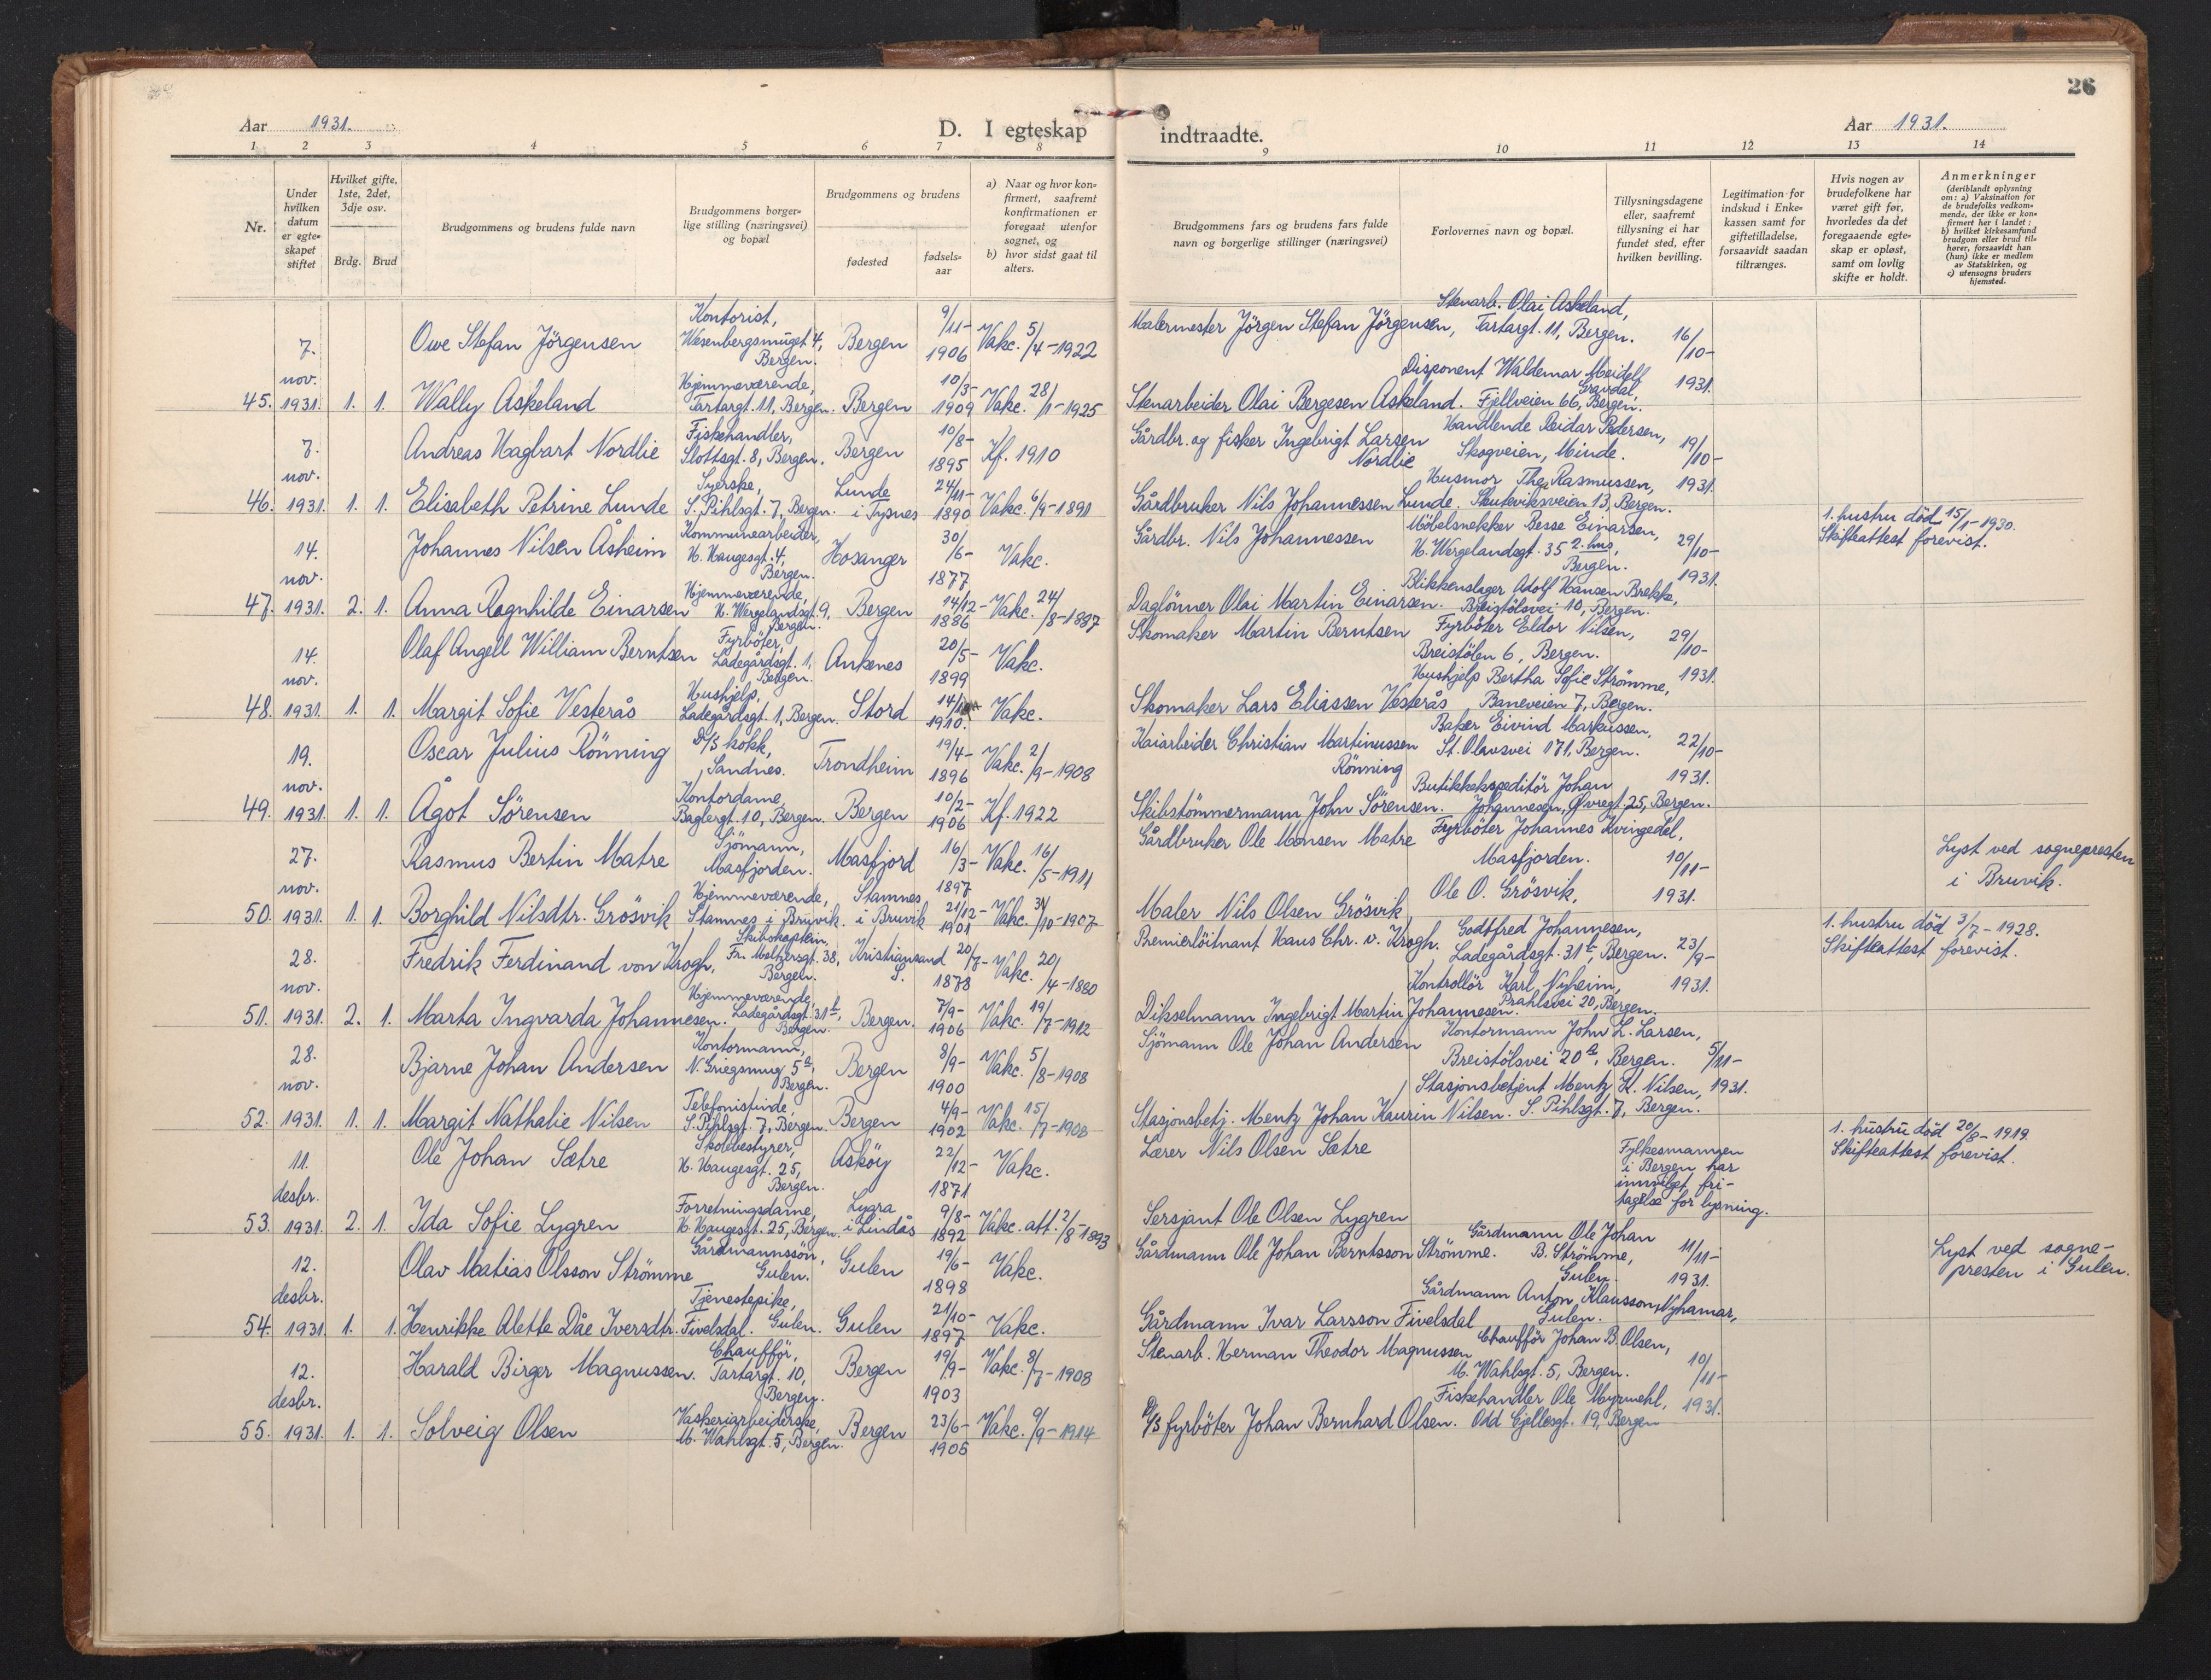 26
Aar 1931.
D. I egteskap indtraadte.
Aar 1931.
1 2 3 4 5 6 7 8 9 10 11 12 13 14
Nr.
Under hvilken datum er egte-skapet stiftet
Hvilket gifte, 1ste, 2det, 3dje osv.
Brdg. Brud
Brudgommens og brudens fulde navn
Brudgommens borger-lige stilling (næringsvei) og bopæl
Brudgommens og brudens
fødested
fødsels-aar
a) Naar og hvor kon-firmert, saafremt konfirmationen er foregaat utenfor sognet, og
b) hvor sidst gaat til alters.
Brudgommens fars og brudens fars fulde navn og borgerlige stillinger (næringsvei)
Forlovernes navn og bopæl.
Tillysningsdagene eller, saafremt tillysning ei har fundet sted, efter hvilken bevilling.
Legitimation for indskud i Enke-kassen samt for giftetilladelse, forsaavidt saadan tiltrænges.
Hvis nogen av brudefolkene har været gift før, hvorledes da det foregaaende egte-skap er opløst, samt om lovlig skifte er holdt.
Anmerkninger
(deriblandt oplysning om: a) Vaksination for de brudefolks vedkom-mende, der ikke er kon-firmert her i landet; b) hvilket kirkesamfund brudgom eller brud til-hører, forsaavidt han (hun) ikke er medlem av Statskirken, og c) utensogns bruders hjemsted.
45. 7. nov. 1931. 1. 1.
Owe Stefan Jörgensen
Kontorist, Wesenbergsmuget 4, Bergen.
Bergen
9/11-1906
Vakc. 5/4-1922
Malermester Jörgen Stefan Jörgensen,
Stenarb. Olai Askeland, Tartargt. 11, Bergen.
16/10-1931.
Wally Askeland
Hjemmeværende, Tartargt. 11, Bergen.
Bergen
10/3-1909
Vakc. 28/1-1925
Stenarbeider Olai Bergesen Askeland.
Disponent Waldemar Meidell Gravdal, Fjellveien 66, Bergen.
46. 7. nov. 1931. 1. 1.
Andreas Hagbart Nordlie
Fiskehandler, Slottsgt. 8, Bergen.
Bergen
10/8-1895
Kf. 1910
Gårdbr. og fisker Ingebrigt Larsen Nordlie
Handlende Reidar Pedersen, Skogveien, Minde.
19/10-1931.
Elisabeth Petrine Lunde
Syerske, S. Pihlsgt. 7, Bergen.
Lunde i Tysnes
24/11-1890
Vakc. 6/9-1891
Gårdbruker Nils Johannessen Lunde.
Husmor Thea Rasmussen, Skuteviksveien 13, Bergen.
47. 14. nov. 1931. 2. 1.
Johannes Nilsen Åsheim
Kommunearbeider, H. Haugesgt. 4, Bergen.
Hosanger
30/6-1877
Vakc.
Gårdbr. Nils Johannessen
Möbelsnekker Besse Einarsen, H. Wergelandsgt. 35 2. hus, Bergen.
29/10-1931.
1. hustru död 15/1-1930. Skifteattest forevist.
Anna Ragnhilde Einarsen
Hjemmeværende, H. Wergelandsgt. 9, Bergen.
Bergen
14/12-1886
Vakc. 24/8-1887
Daglönner Olai Martin Einarsen.
Blikkenslager Adolf Hansen Brekk, Breistölsvei 10, Bergen.
48. 14. nov. 1931. 1. 1.
Olaf Angell William Berntsen
Fyrböter, Ladegårdsgt. 1, Bergen.
Ankenes
20/5-1899
Vakc.
Skomaker Martin Berntsen
Fyrböter Eldor Nilsen, Breistölen 6, Bergen.
29/10-1931.
Margit Sofie Vesterås
Hushjelp, Ladegårdsgt. 1, Bergen.
Stord
1910.
Vakc.
Skomaker Lars Eliassen Vesterås
Hushjelp Bertha Sofie Strömme, Baneveien 7, Bergen.
49. 19. nov. 1931. 1. 1.
Oscar Julius Rönning
D/S kokk, Sandnes.
Trondheim
19/4-1896
Vakc. 2/9-1908
Kaiarbeider Christian Martinussen Rönning
Baker Eivind Markussen, St. Olavsvei 171, Bergen.
22/10-1931.
Ågot Sörensen
Kontordame, Baglergt. 10, Bergen.
Bergen
10/2-1906
Kf. 1922
Skibstömmermann John Sörensen.
Butikkekspeditör Johan Johannesen, Øvregt. 25, Bergen.
50. 27. nov. 1931. 1. 1.
Rasmus Bertin Matre
Sjömann, Masfjorden.
Masfjord
16/3-1897
Vakc. 16/5-1911
Gårdbruker Ole Monsen Matre
Fyrböter Johannes Kvingedel, Masfjorden.
10/11-1931.
Lyst ved sognepresten i Bruvik.
Borghild Nilsdtr. Grösvik
Hjemmeværende, Stamnes i Bruvik.
Stamnes i Bruvik
21/12-1901
Vakc. 31/10-1907
Maler Nils Olsen Grösvik
Ole O. Grösvik,
51. 28. nov. 1931. 2. 1.
Fredrik Ferdinand von Krogh,
Skibskaptein, Fr. Meltzersgt. 38, Bergen.
Kristiansand S.
20/7-1878
Vakc. 20/4-1880
Premierlöitnant Hans Chr. v. Krogh.
Godtfred Johannesen, Ladegårdsgt. 31 b, Bergen.
23/9-1931.
1. hustru död 3/7-1928. Skifteattest forevist.
Marta Ingvarda Johannesen.
Hjemmeværende, Ladegårdsgt. 31 b, Bergen.
Bergen.
7/9-1906
Vakc. 19/7-1912
Dikselmann Ingebrigt Martin Johannesen.
Kontrollör Karl Nyheim, Prahlsvei 20, Bergen.
52. 28. nov. 1931. 1. 1.
Bjarne Johan Andersen
Kontormann, N. Griegsmug 5 a, Bergen.
Bergen
8/9-1900
Vakc. 5/8-1908
Sjömann Ole Johan Andersen
Kontormann John L. Larsen, Breistölsvei 20 a, Bergen.
5/11-1931.
Margit Nathalie Nilsen
Telefonistinde, S. Pihlsgt. 7, Bergen.
Bergen
4/9-1902
Vakc. 15/7-1908
Stasjonsbetj. Mentz Johan Kaurin Nilsen.
Stasjonsbetjent Mentz K. Nilsen, S. Pihlsgt. 7, Bergen.
53. 11. desbr. 1931. 2. 1.
Ole Johan Sætre
Skolebestyrer, H. Haugesgt. 25, Bergen.
Asköy
22/12-1871
Vakc.
Lærer Nils Olsen Sætre
Fylkesmannen i Bergen har innvilget fri-tagelse for lysning.
1. hustru död 20/8-1919. Skifteattest forevist.
Ida Sofie Lygren
Forretningsdame, H. Haugesgt. 25, Bergen.
Lygra i Lindås
9/8-1892
Vakc. att. 2/8-1893
Sersjant Ole Olsen Lygren
54. 12. desbr. 1931. 1. 1.
Olav Matias Olsson Strömme
Gårdmannssön, Gulen.
Gulen
19/6-1898
Vakc.
Gårdmann Ole Johan Berntsson Strömme.
Gårdmann Ole Johan B. Strömme, Gulen.
11/11-1931.
Lyst ved sogne-presten i Gulen.
Henrikke Alette Dåe Iversdtr. Fivelsdal.
Tjenestepike, Gulen.
Gulen
21/10-1897
Vakc.
Gårdmann Ivar Larsson Fivelsdal
Gårdmann Anton Klausson Nyhamar, Gulen.
55. 12. desbr. 1931. 1. 1.
Harald Birger Magnussen.
Chaufför, Tartargt. 10, Bergen.
Bergen
19/9-1903
Vakc. 8/7-1908
Stenarb. Herman Theodor Magnussen
Chaufför Johan B. Olsen, M. Wahlsgt. 5, Bergen.
10/11-1931.
Solveig Olsen
Vaskeriarbeiderske, M. Wahlsgt. 5, Bergen.
Bergen
23/6-1905
Vakc. 9/9-1914
D/S fyrböter Johan Bernhard Olsen.
Fiskehandler Ole Myrmehl, Odd Gjellesgt. 19, Bergen